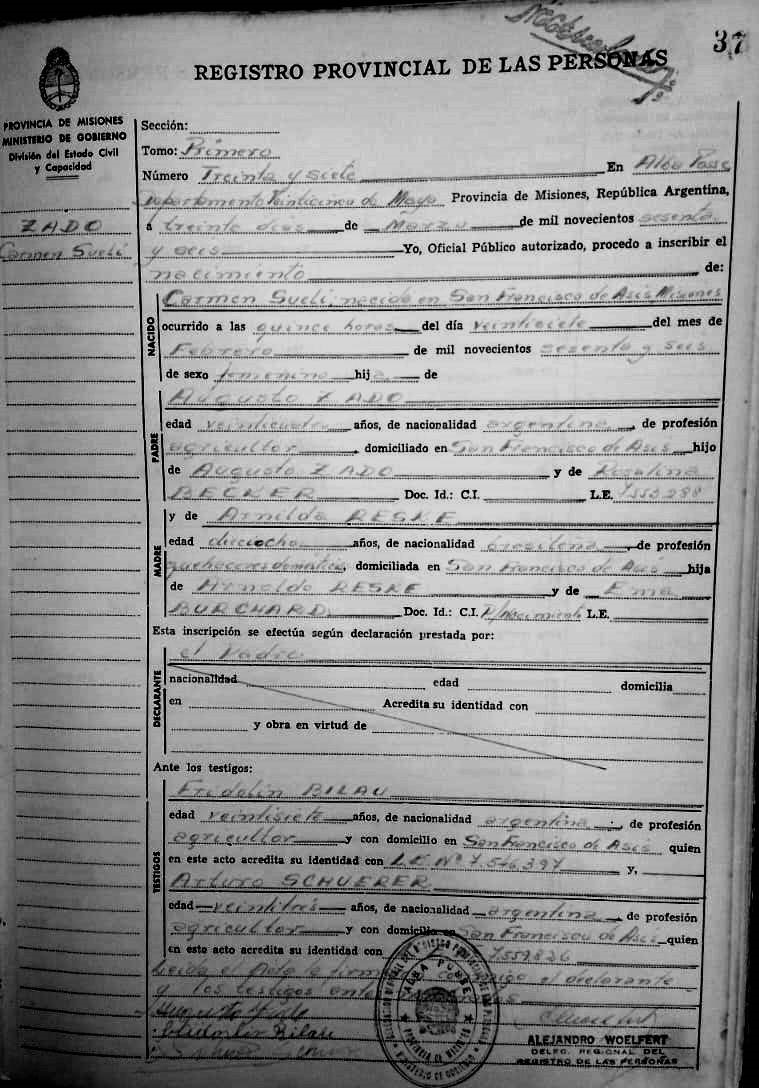 37
REGISTRO PROVINCIAL DE LAS PERSONAS
PROVINCIA DE MISIONES
MINISTERIO DE GOBIERNO
División del Estado Civil
y Capacidad
ZADO
Carmen Sueli
Sección:
Tomo: Primero
Número Treinta y siete En Alba Posse
Departamento Veinticinco de Mayo Provincia de Misiones, República Argentina,
a treinta días de Marzo de mil novecientos sesenta
y seis Yo, Oficial Público autorizado, procedo a inscribir el
nacimiento de:
NACIDO
Carmen Sueli; nacida en San Francisco de Asis Misiones
ocurrido a las quince horas del día veintisiete del mes de
Febrero de mil novecientos sesenta y seis
de sexo femenino hija de
PADRE
Augusto ZADO
edad años, de nacionalidad argentina, de profesión
agricultor, domiciliado en San Francisco de Asis hijo
de Augusto ZADO y de Rosalina
BECKER Doc. Id.: C.I. L.E. 7.553.280
MADRE
y de Arnilda RESKE
edad dieciocho años, de nacionalidad brasileña, de profesión
quehaceres domésticos, domiciliada en San Francisco de Asis hija
de Arnoldo RESKE y de Ema
BURCHARD Doc. Id.: C.I. P/Nacimiento L.E.
Esta inscripción se efectúa según declaración prestada por:
el Padre
DECLARANTE
nacionalidad edad domicilia
en Acredita su identidad con
y obra en virtud de
Ante los testigos:
TESTIGOS
Fridolin BILAU
edad veintisiete años, de nacionalidad argentina, de profesión
agricultor y con domicilio en San Francisco de Asis quien
en este acto acredita su identidad con L.E. Nº 7.546.397 y,
Arturo SCHUERER
edad veintitrés años, de nacionalidad argentina, de profesión
agricultor y con domicilio en San Francisco de Asis quien
en este acto acredita su identidad con 7.559.826
Leida el Acta la firman conmigo el declarante
y los testigos
Bilau
ALBA POSSE
PROVINCIA DE MISIONES
MINISTERIO DE GOBIERNO
ALEJANDRO WOELFERT
DELEG. REGIONAL DEL
REGISTRO DE LAS PERSONAS